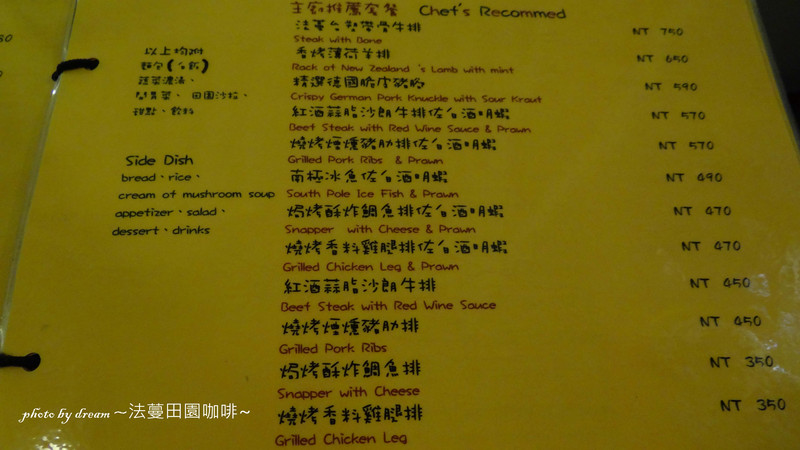 主廚推薦套餐 Chef's Recommed
法蔓台塑帶骨牛排 NT 750
Steak with Bone
香烤薄荷羊排 NT 650
Rack of New Zealand 's Lamb with mint
精選德國脆皮豬腳 NT 590
Crispy German Pork Knuckle with Sour Kraut
紅酒蒜脂沙朗牛排佐白酒明蝦 NT 570
Beef Steak with Red Wine Sauce & Prawn
燒烤煙燻豬肋排佐白酒明蝦 NT 570
Grilled Pork Ribs & Prawn
南極冰魚佐白酒明蝦 NT 490
South Pole Ice Fish & Prawn
焗烤酥炸鯛魚排佐白酒明蝦 NT 470
Snapper with Cheese & Prawn
燒烤香料雞腿排佐白酒明蝦 NT 470
Grilled Chicken Leg & Prawn
紅酒蒜脂沙朗牛排 NT 450
Beef Steak with Red Wine Sauce
燒烤煙燻豬肋排 NT 450
Grilled Pork Ribs
焗烤酥炸鯛魚排 NT 350
Snapper with Cheese
燒烤香料雞腿排 NT 350
Grilled Chicken Leg
以上均附
麵包(白飯)
蔬菜濃湯、
開胃菜、田園沙拉、
甜點、飲料
Side Dish
bread、rice、
cream of mushroom soup
appetizer、salad、
dessert、drinks
photo by dream ~法蔓田園咖啡~